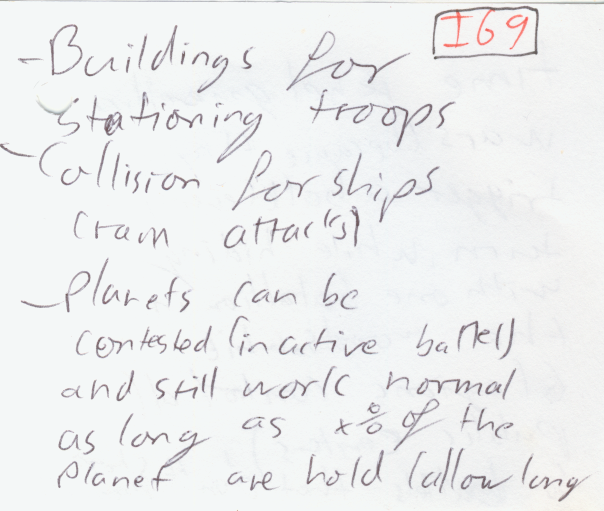 I69
- Buildings for
stationing troops
- Collision for ships
(ram attacks)
- Planets can be
contested (in active battel)
and still work normal
as long as x% of the
planet are hold (allow long